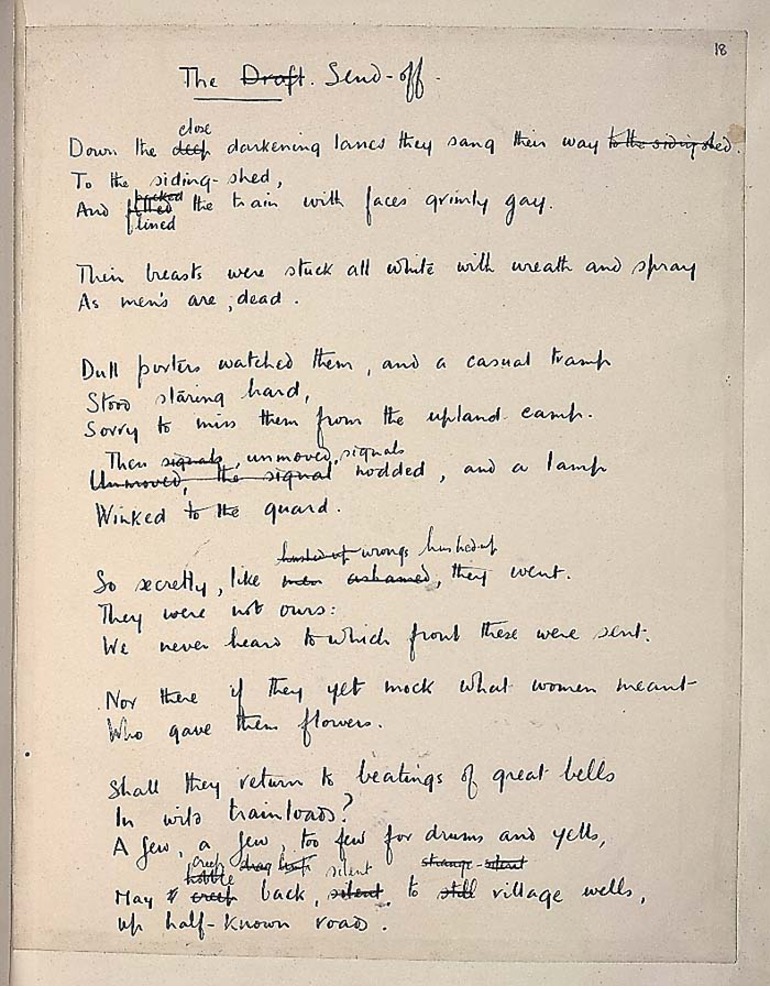 18
The Draft. Send-off.
close
Down the deep darkening lanes they sang their way to the siding-shed.
To the siding-shed,
packed
And filled the train with faces grimly gay.
lined
Their breasts were stuck all white with wreath and spray
As men's are, dead.
Dull porters watched them, and a casual tramp
Stood staring hard,
Sorry to miss them from the upland camp.
Then signals, unmoved, signals
Unmoved, the signal nodded, and a lamp
Winked to the guard.
hushed-up wrongs hushed-up
So secretly, like men ashamed, they went.
They were not ours:
We never heard to which front these were sent.
Nor there if they yet mock what women meant
Who gave them flowers.
Shall they return to beatings of great bells
In wild trainloads?
A few, a few, too few for drums and yells,
creep drag silent strange-silent
hobble
May creep back, silent, to still village wells,
up half-known roads.